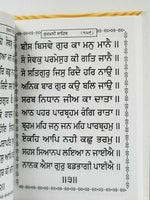 ਸੁਖਮਨੀ ਸਾਹਿਬ
ਬੀਸ ਬਿਸਵੇ ਗੁਰ ਕਾ ਮਨੁ ਮਾਨੈ ॥
ਸੋ ਸੇਵਕੁ ਪਰਮੇਸੁਰ ਕੀ ਗਤਿ ਜਾਨੈ ॥
ਸੋ ਸਤਿਗੁਰੁ ਜਿਸੁ ਰਿਦੈ ਹਰਿ ਨਾਉ ॥
ਅਨਿਕ ਬਾਰ ਗੁਰ ਕਉ ਬਲਿ ਜਾਉ ॥
ਸਰਬ ਨਿਧਾਨ ਜੀਅ ਕਾ ਦਾਤਾ ॥
ਆਠ ਪਹਰ ਪਾਰਬ੍ਰਹਮ ਰੰਗਿ ਰਾਤਾ ॥
ਬ੍ਰਹਮ ਮਹਿ ਜਨੁ ਜਨ ਮਹਿ ਪਾਰਬ੍ਰਹਮੁ ॥
ਏਕਹਿ ਆਪਿ ਨਹੀ ਕਛੁ ਭਰਮੁ ॥
ਸਹਸ ਸਿਆਨਪ ਲਇਆ ਨ ਜਾਈਐ ॥
ਨਾਨਕ ਐਸਾ ਗੁਰੁ ਬਡਭਾਗੀ ਪਾਈਐ ॥
॥੩॥